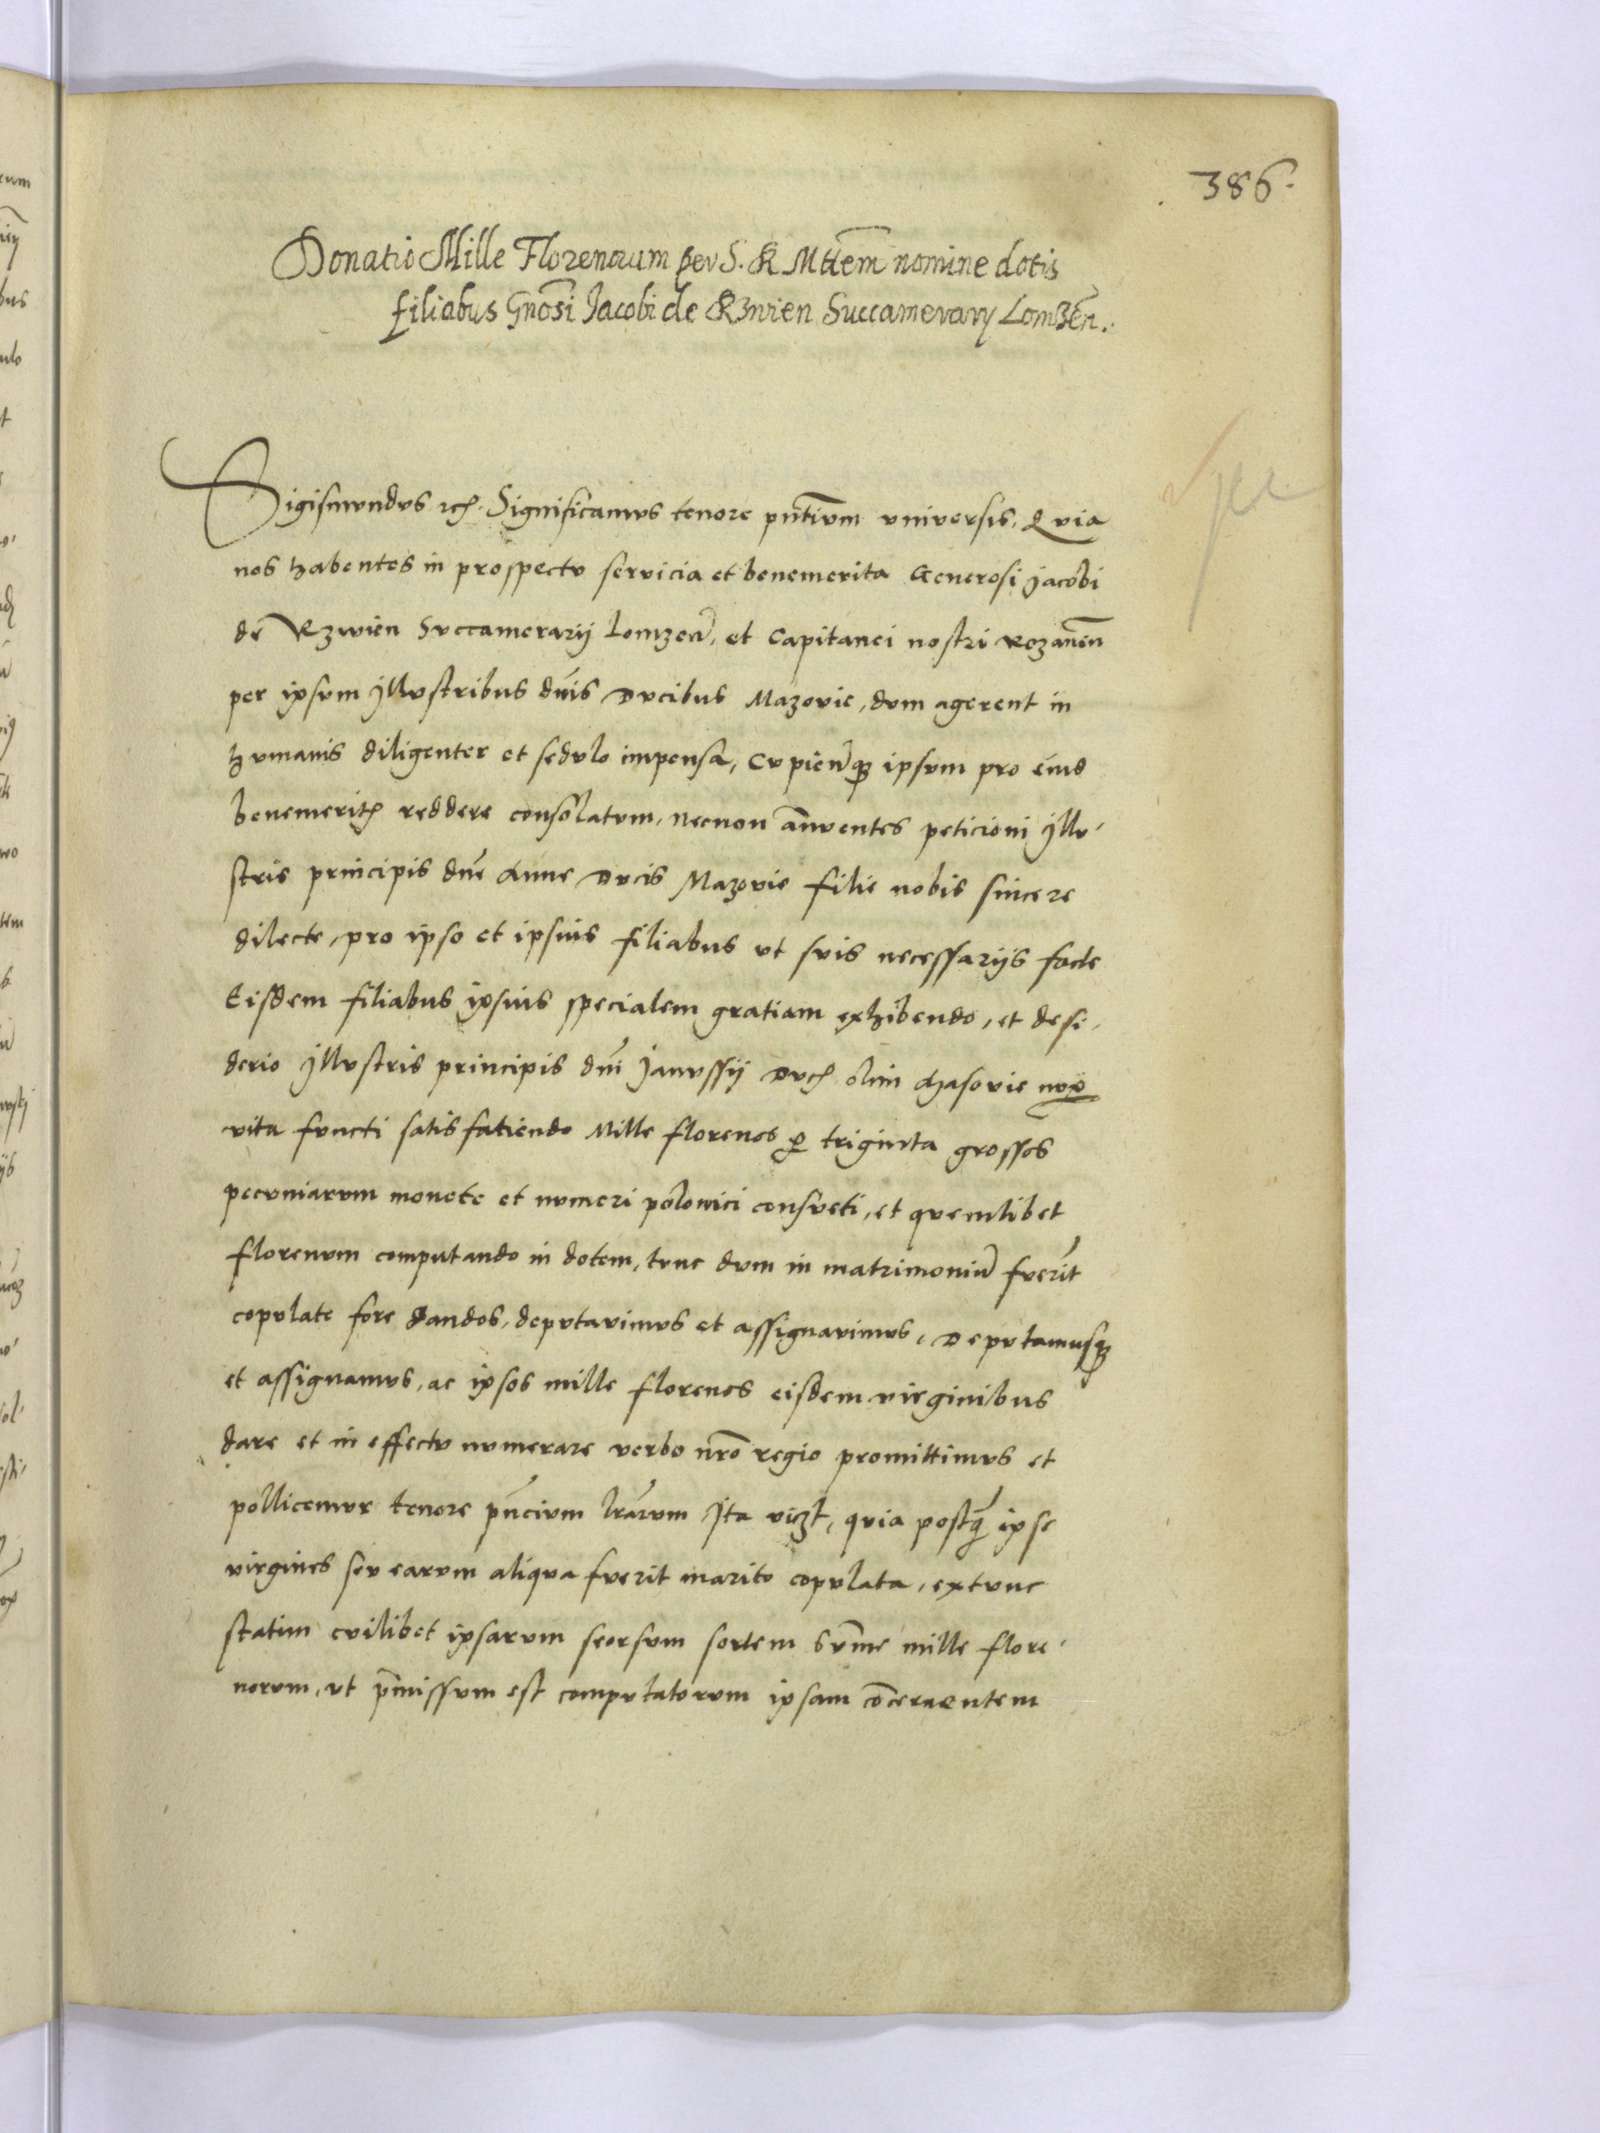 386.
Donatio Mille Florenorum per S. R Mtem nomine dotis
filiabus Gnosi Jacobi de Rzwien Succamerarij Lomzen.
Sigismundus rch. Significamus tenore pntium vniversis, Quia
nos habentes in prospectu servicia et benemerita Generosi Jacobi
de Rzwien Succamerarij Lomzen, et Capitanei nostri Rozanen
per ipsum Jllustribus dnis Ducibus Mazovie, dum agerent in
humanis diligenter et sedulo impensa, Cupientesq ipsum pro eius
benemeritis reddere consolatum, necnon annuentes peticioni Jllu-
stris principis dne Anne Ducis Mazovie filie nobis sincere
dilecte, pro ipso et ipsius filiabus ut suis necessarijs facte
Eisdem filiabus ipsius specialem gratiam exhibendo, et desi-
derio Jllustris principis dni Janussij Ducis olim Masovie nuper
vita functi satis fatiendo Mille florenos per triginta grossos
pecuniarum monete et numeri polonici consueti, et quemlibet
florenum computando in dotem, tunc dum in matrimoniu fuerit
copulate fore dandos, deputavimus et assignavimus, Deputamusq
et assignamus, ac ipsos mille florenos eisdem virginibus
dare et in effectu numerare verbo nro regio promittimus et
pollicemur tenore pncium lrarum Jta vizt, quia postq ipse
virgines seu earum aliqua fuerit marito copulata, extunc
statim cuilibet ipsarum seorsum sortem summe mille flore-
norum, ut pmissum est computatorum ipsam concernentem